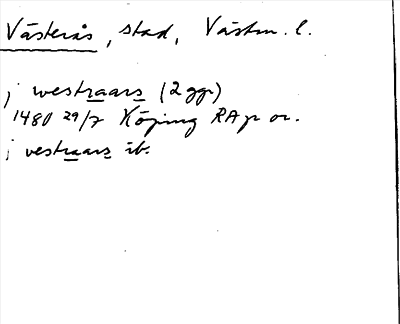 Västerås, stad, Västm. l.
j westraars (2 ggr)
1480 29/7 Köping RAp or.
j vestraars ib.